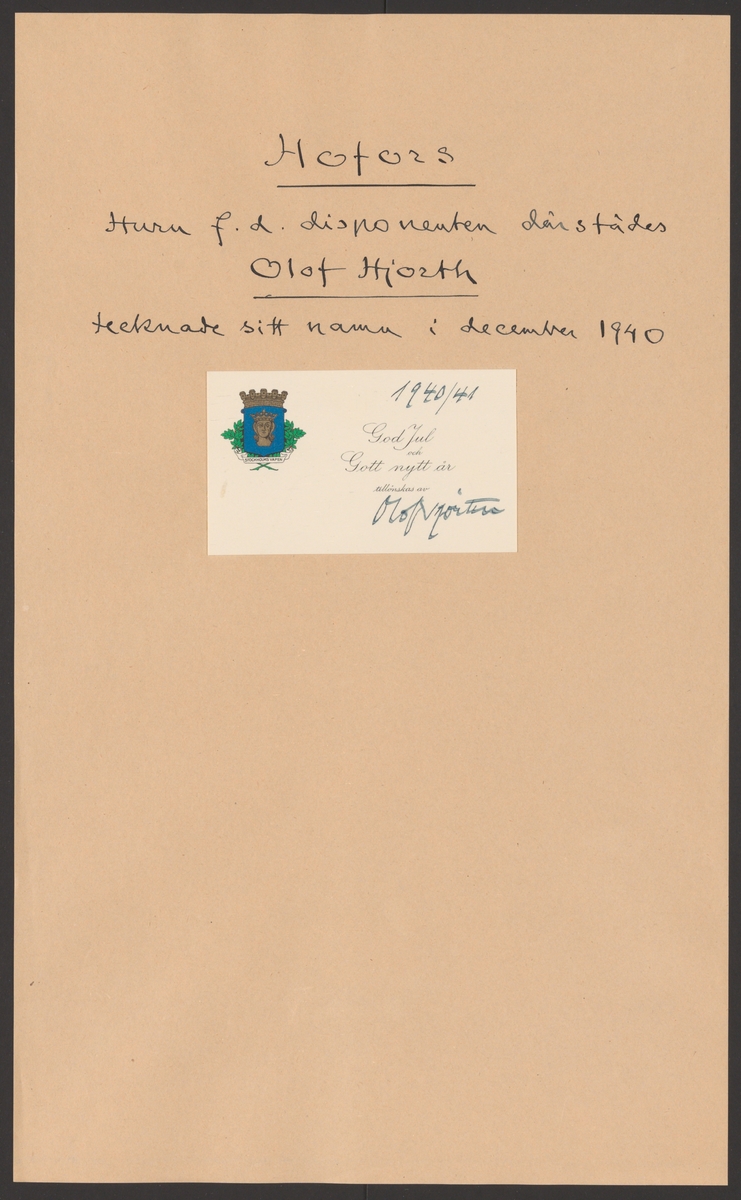 Hofors
Huru f.d. disponenten därstädes
Olof Hjorth
tecknade sitt namn i december 1940
1940/41
God Jul
och
Gott nytt år
tillönskas av
Olof Hjorth